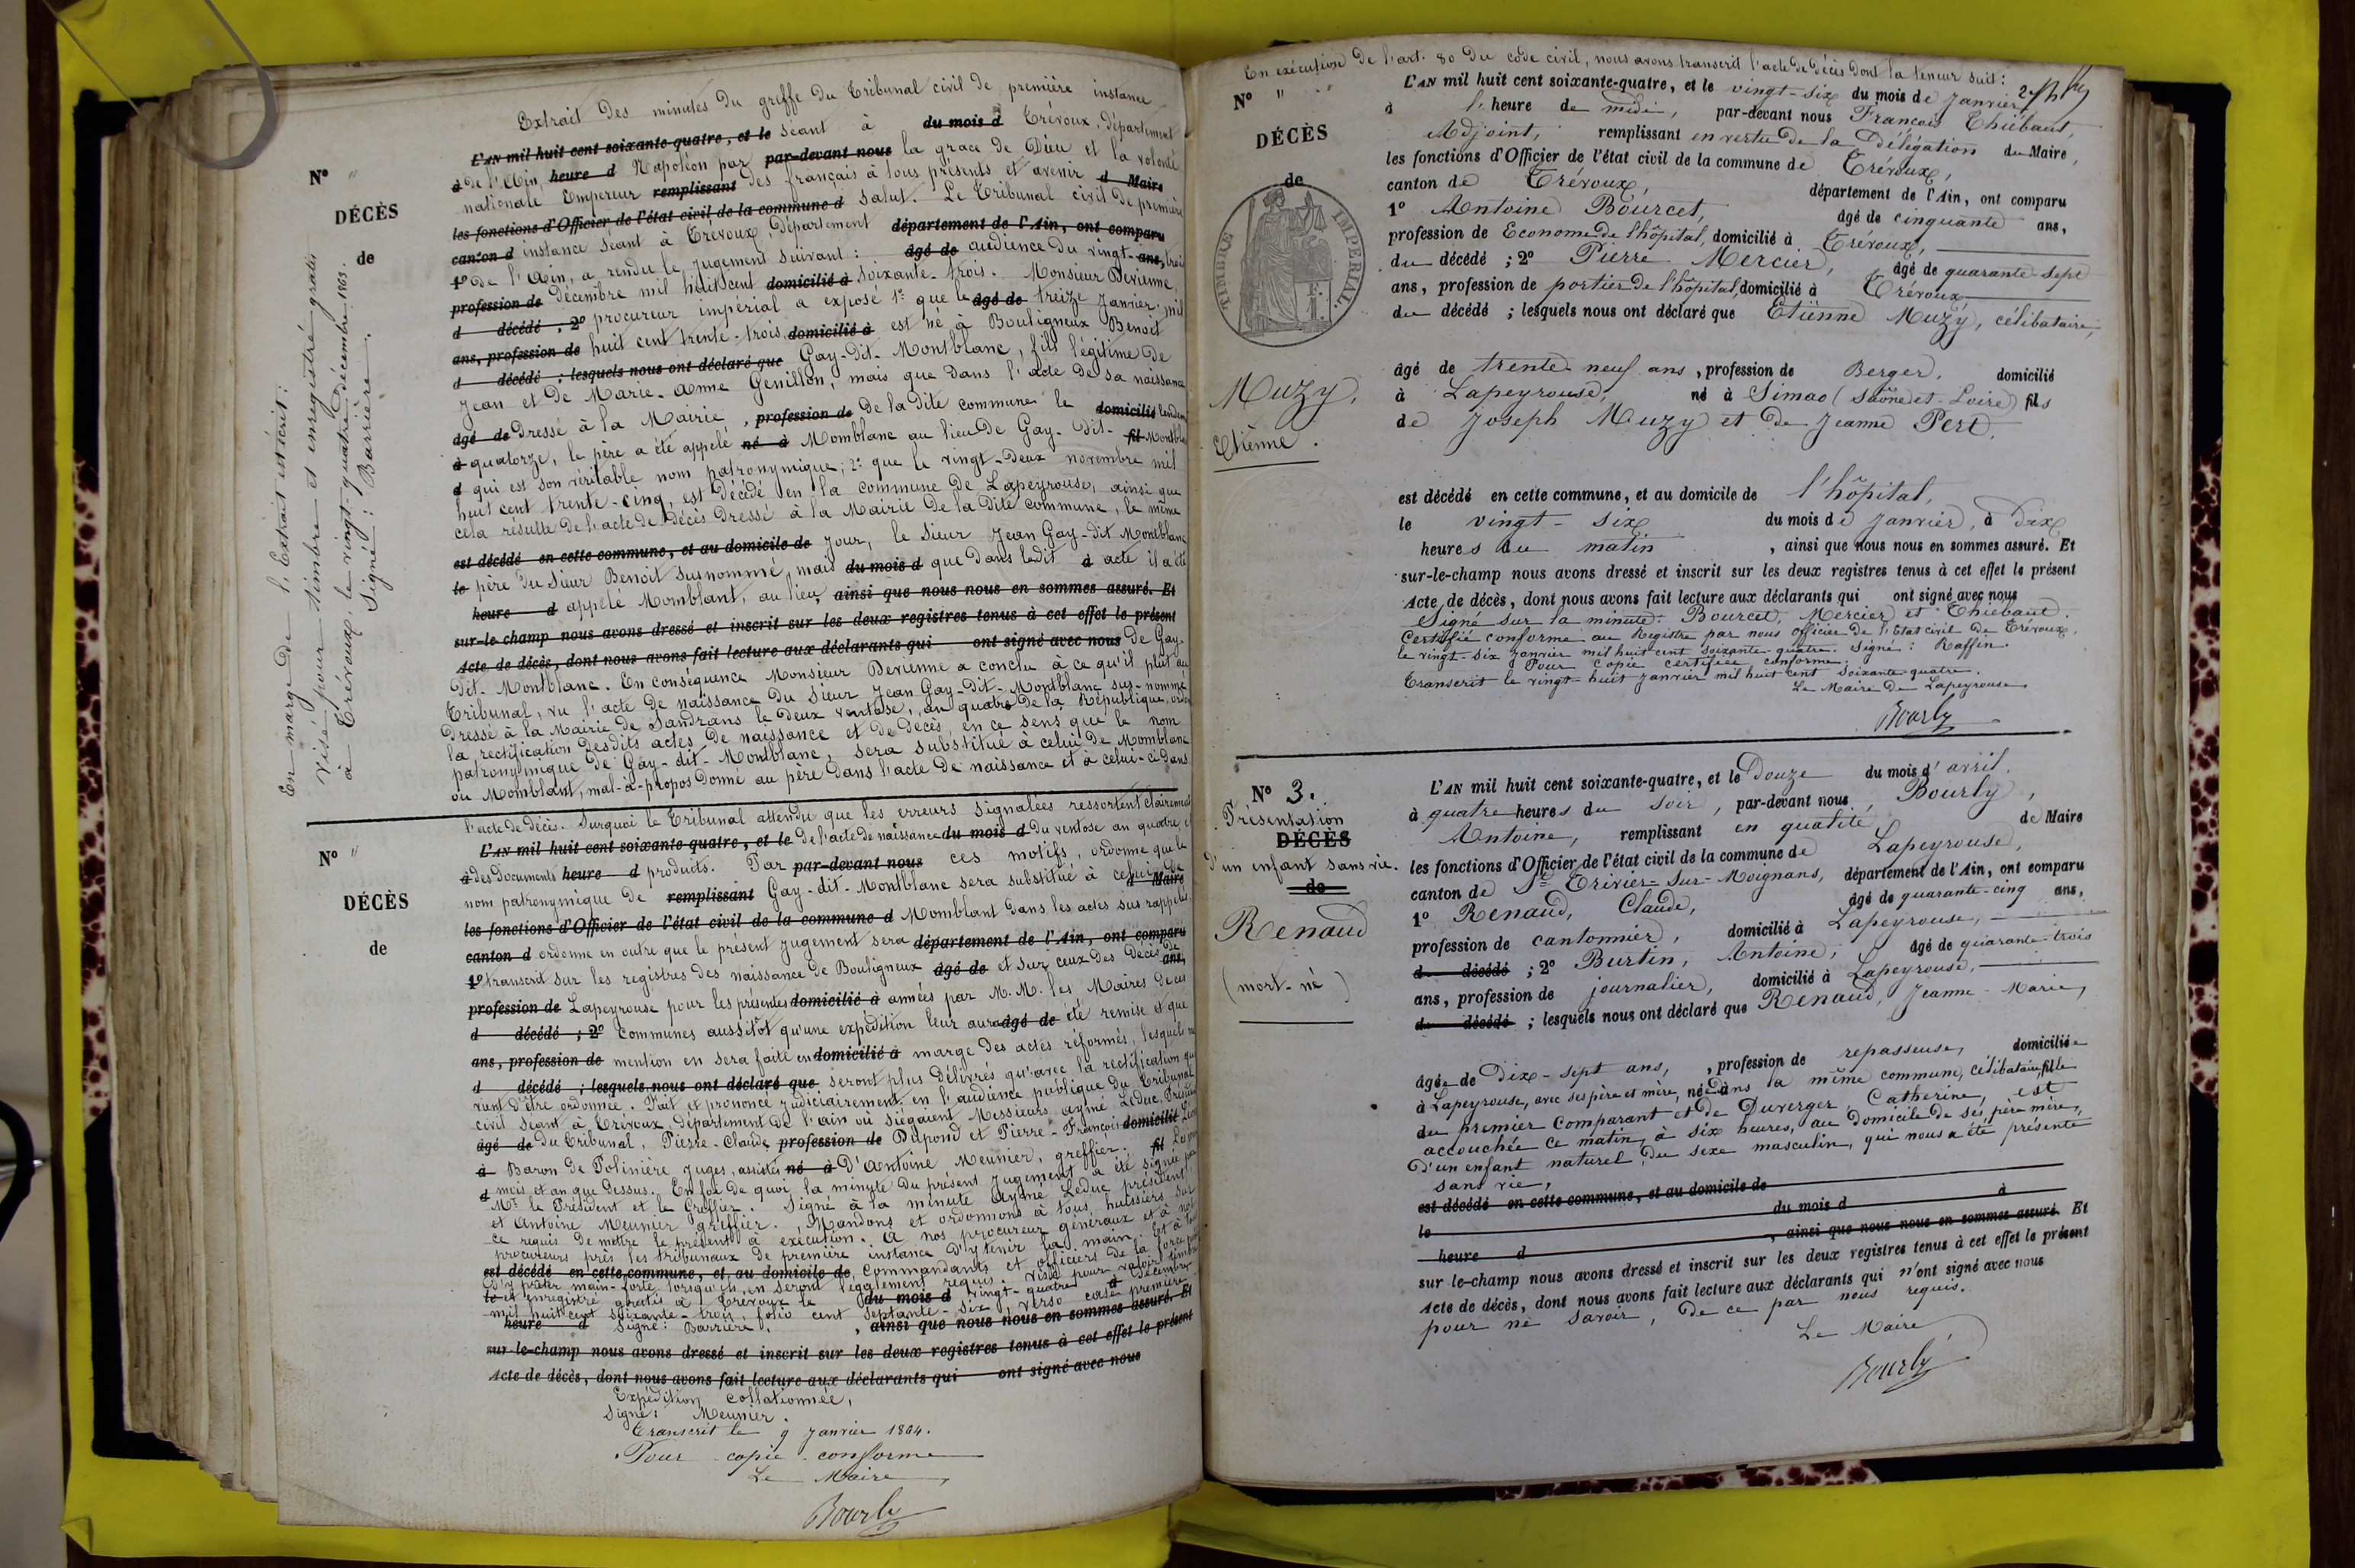 Extrait des minutes du greffe du Tribunal civil de première instance
L'AN mil huit cent soixante-quatre, et le séant à du mois d Trévoux, département
à de l'Ain, heure d Napoléon par par-devant nous la grace de Dieu et la volonté
nationale Empereur remplissant des français à tous présents et avenir d Maire
les fonctions d'Officier de l'état civil de la commune d salut. Le Tribunal civil de première
canton d instance séant à Trévoux, département département de l'Ain, ont comparu
1º de l'Ain, a rendu le jugement suivant : âgé de audience du vingt- ans, trois
profession de décembre mil huit cent domicilié à soixante-trois. Monsieur Devienne,
d décédé ; 2º procureur impérial a exposé 1º que le âgé de treize janvier mil
ans, profession de huit cent trente-trois, domicilié à est né à Bouligneux Benoit
d décédé ; lesquels nous ont déclaré que Gay-dit-Montblanc, fils légitime de
Jean et de Marie-Anne Genillon, mais que dans l'acte de sa naissance
âgé de dressé à la Mairie, profession de de la dite commune le domicilié
à quatorze, le père a été appelé né à Momblanc au lieu de Gay-dit- fil Montblanc
d qui est son véritable nom patronymique ; 2º que le vingt-deux novembre mil
huit cent trente-cinq, est décédé en la commune de Lapeyrouse, ainsi que
cela résulte de l'acte de décès dressé à la Mairie de la dite commune, le même
est décédé en cette commune, et au domicile de jour, le sieur Jean Gay-dit Montblanc
le père du sieur Benoit susnommé, mais du mois d que dans ledit à acte il a été
heure d appelé Momblant, au lieu, ainsi que nous nous en sommes assuré. Et
sur-le-champ nous avons dressé et inscrit sur les deux registres tenus à cet effet le présent
Acte de décès, dont nous avons fait lecture aux déclarants qui ont signé avec nous de Gay-
dit-Montblanc. En conséquence Monsieur Devienne a conclu à ce qu'il plut au
Tribunal, vu l'acte de naissance du sieur Jean Gay-dit-Montblanc sus-nommé
dressé à la Mairie de Sandrans le deux ventose, an quatre de la République,
la rectification desdits actes de naissance et de décès, en ce sens que le nom
patronymique de Gay-dit-Montblanc, sera substitué à celui de Momblanc
ou Momblant, mal-à-propos donné au père dans l'acte de naissance et à celui-ci dans
En marge de l'Extrait est écrit :
Visé pour timbre et enregistré gratis
à Trévoux, le vingt-quatre décembre 1863.
Signé : Barrière.
Nº "
DÉCÈS
de
l'acte de décès. Surquoi le Tribunal attendu que les erreurs signalées ressortent clairement
L'AN mil huit cent soixante-quatre, et le de l'acte de naissance du mois d du ventose an quatre et
à des documents heure d produits. Par par-devant nous ces motifs, ordonne que le
nom patronymique de remplissant Gay-dit-Montblanc sera substitué à celui de d Maire
les fonctions d'Officier de l'état civil de la commune d Momblant dans les actes sus rappelés,
canton d ordonne en outre que le présent jugement sera département de l'Ain, ont comparu
1º transcrit sur les registres des naissance de Bouligneux âgé de et sur ceux des décès de ans,
profession de Lapeyrouse pour les présentes domicilié à années par M.M. les Maires de ces
d décédé ; 2º communes aussitôt qu'une expédition leur aura âgé de été remise et que
ans, profession de mention en sera faite en domicilié à marge des actes réformés, lesquels ne
d décédé ; lesquels nous ont déclaré que seront plus délivrés qu'avec la rectification qui
vient d'être ordonnée. Fait et prononcé judiciairement en l'audience publique du Tribunal
civil séant à Trévoux, département de l'ain où siégeaient Messieurs Aymé Leduc, Président
âgé de du Tribunal, Pierre-Claude profession de Dupond et Pierre-François domicilié
à Baron de Polinière juges, assistés né à D'Antoine Meunier, greffier. fil
d mois et an que dessus. En foi de quoi la minute du présent jugement a été signé par
Mr. le Président et le Greffier. Signé à la minute Aymé Leduc président
et Antoine Meunier greffier. Mandons et ordonnons à tous huissiers sur
ce requis de mettre le présent à exécution. A nos procureur généraux et à nos
procureurs près les tribunaux de première instance d'y tenir la main. Et à tous
est décédé en cette commune, et au domicile de Commandants et officiers de la force
d'y prêter main-forte lorsqu'ils en seront légalement requis. Visé pour valoir timbre
le et enregistré gratis à Trévoux le du mois d vingt-quatre à décembre
mil huit cent soixante-trois, folio cent septante-six, verso case première
heure d Signé : Barrière. , ainsi que nous nous en sommes assuré. Et
sur-le-champ nous avons dressé et inscrit sur les deux registres tenus à cet effet le présent
Acte de décès, dont nous avons fait lecture aux déclarants qui ont signé avec nous
Expédition collationnée,
Signé : Meunier.
Transcrit le 9 janvier 1864.
Pour copie conforme
Le Maire,
Bourly
Nº "
DÉCÈS
de
En exécution de l'art. 80 du code civil, nous avons transcrit l'acte de décès dont la teneur suit :
L'AN mil huit cent soixante-quatre, et le vingt-six du mois de janvier,
à l'heure de midi, par-devant nous François Thiébaut,
Adjoint, remplissant en vertu de la délégation du Maire,
les fonctions d'Officier de l'état civil de la commune de Trévoux,
canton de Trévoux, département de l'Ain, ont comparu
1º Antoine Bourcet, âgé de cinquante ans,
profession de Econome de l'hôpital, domicilié à Trévoux,
du décédé ; 2º Pierre Mercier, âgé de quarante-sept
ans, profession de portier de l'hôpital, domicilié à Trévoux
du décédé ; lesquels nous ont déclaré que Etiènne Muzy, célibataire,
âgé de trente neuf ans, profession de Berger, domicilié
à Lapeyrouse, né à Simao (Saône et-Loire) fils
de Joseph Muzy et de Jeanne Pert.
est décédé en cette commune, et au domicile de l'hôpital,
le vingt-six du mois de janvier, à dix
heures du matin, ainsi que nous nous en sommes assuré. Et
sur-le-champ nous avons dressé et inscrit sur les deux registres tenus à cet effet le présent
Acte de décès, dont nous avons fait lecture aux déclarants qui ont signé avec nous
Signé sur la minute : Bourcet, Mercier et Thiébaut.
Certifié conforme au Registre par nous officier de l'Etat civil de Trévoux,
le vingt-six janvier mil huit cent soixante-quatre. Signé : Raffin.
Pour copie certifiée conforme.
Transcrit le vingt-huit janvier mil huit cent soixante-quatre.
Le Maire de Lapeyrouse
Bourly
Nº " "
DÉCÈS
de
TIMBRE IMPERIAL
Muzy,
Etiènne.
Nº 3.
Présentation
DÉCÈS
d'un enfant sans vie.
de
Renaud
(mort-né)
L'AN mil huit cent soixante-quatre, et le Douze du mois d'avril,
à quatre heures du soir, par-devant nous, Bourly,
Antoine, remplissant en qualité de Maire
les fonctions d'Officier de l'état civil de la commune de Lapeyrouse,
canton de St Trivier-sur-Moignans, département de l'Ain, ont comparu
1º Renaud, Claude, âgé de quarante-cinq ans,
profession de cantonnier, domicilié à Lapeyrouse,
du décédé ; 2º Burtin, Antoine, âgé de quarante-trois
ans, profession de journalier, domicilié à Lapeyrouse,
du décédé ; lesquels nous ont déclaré que Renaud, Jeanne-Marie,
âgée de Dix-sept ans, , profession de repasseuse, domiciliée
à Lapeyrouse, avec ses père et mère, née dans la même commune, célibataire, fille
du premier comparant et de Duverger, Catherine, est
accouchée ce matin, à six heures, au domicile de ses père mère,
d'un enfant naturel, du sexe masculin, qui nous a été présenté
sans vie,
est décédé en cette commune, et au domicile de
le du mois d à
heure d , ainsi que nous nous en sommes assuré. Et
sur-le-champ nous avons dressé et inscrit sur les deux registres tenus à cet effet le présent
Acte de décès, dont nous avons fait lecture aux déclarants qui n'ont signé avec nous
pour ne savoir, de ce par nous requis.
Le Maire,
Bourly